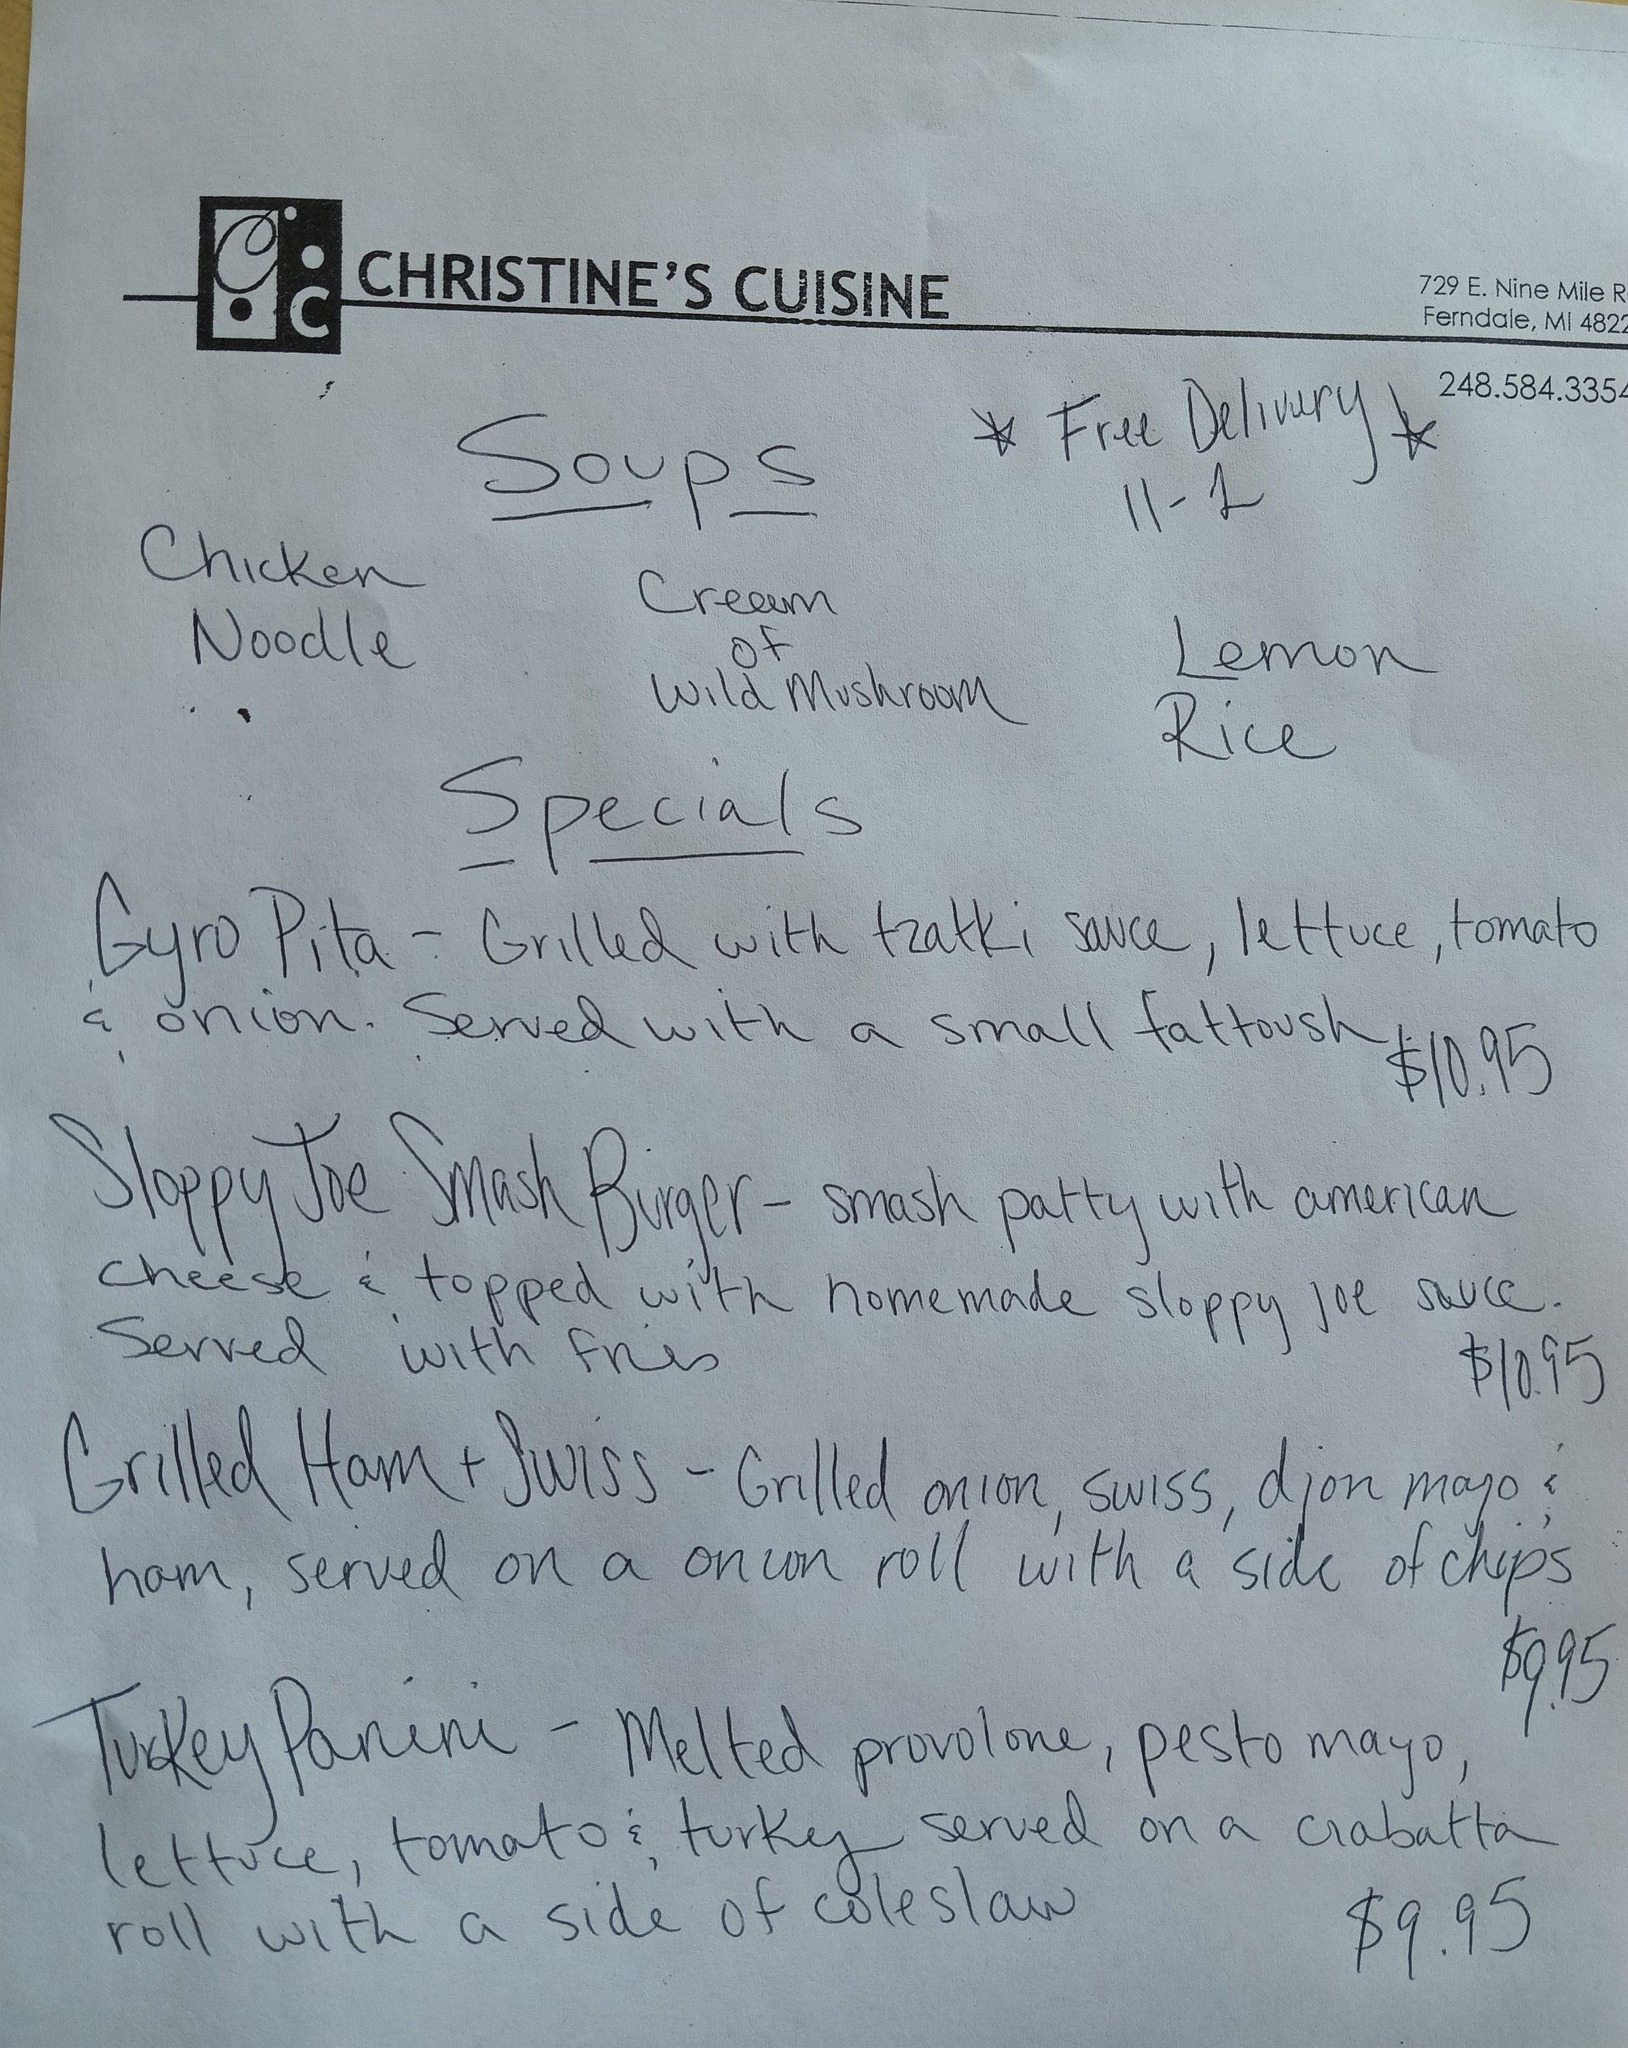 CHRISTINE'S CUISINE
729 E. Nine Mile R
Ferndale, MI 4822
248.584.3354
* Free Delivery *
11-1
Soups
Chicken
Noodle
Cream
of
Wild Mushroom
Lemon
Rice
Specials
Gyro Pita - Grilled with tzatki sauce, lettuce, tomato
& onion. Served with a small fattoush
$10.95
Sloppy Joe Smash Burger - smash patty with american
cheese & topped with homemade sloppy joe sauce.
Served with fries
$10.95
Grilled Ham + Swiss - Grilled onion, swiss, djon mayo &
ham, served on a onion roll with a side of chips
$9.95
Turkey Panini - Melted provolone, pesto mayo,
lettuce, tomato & turkey served on a ciabatta
roll with a side of coleslaw
$9.95